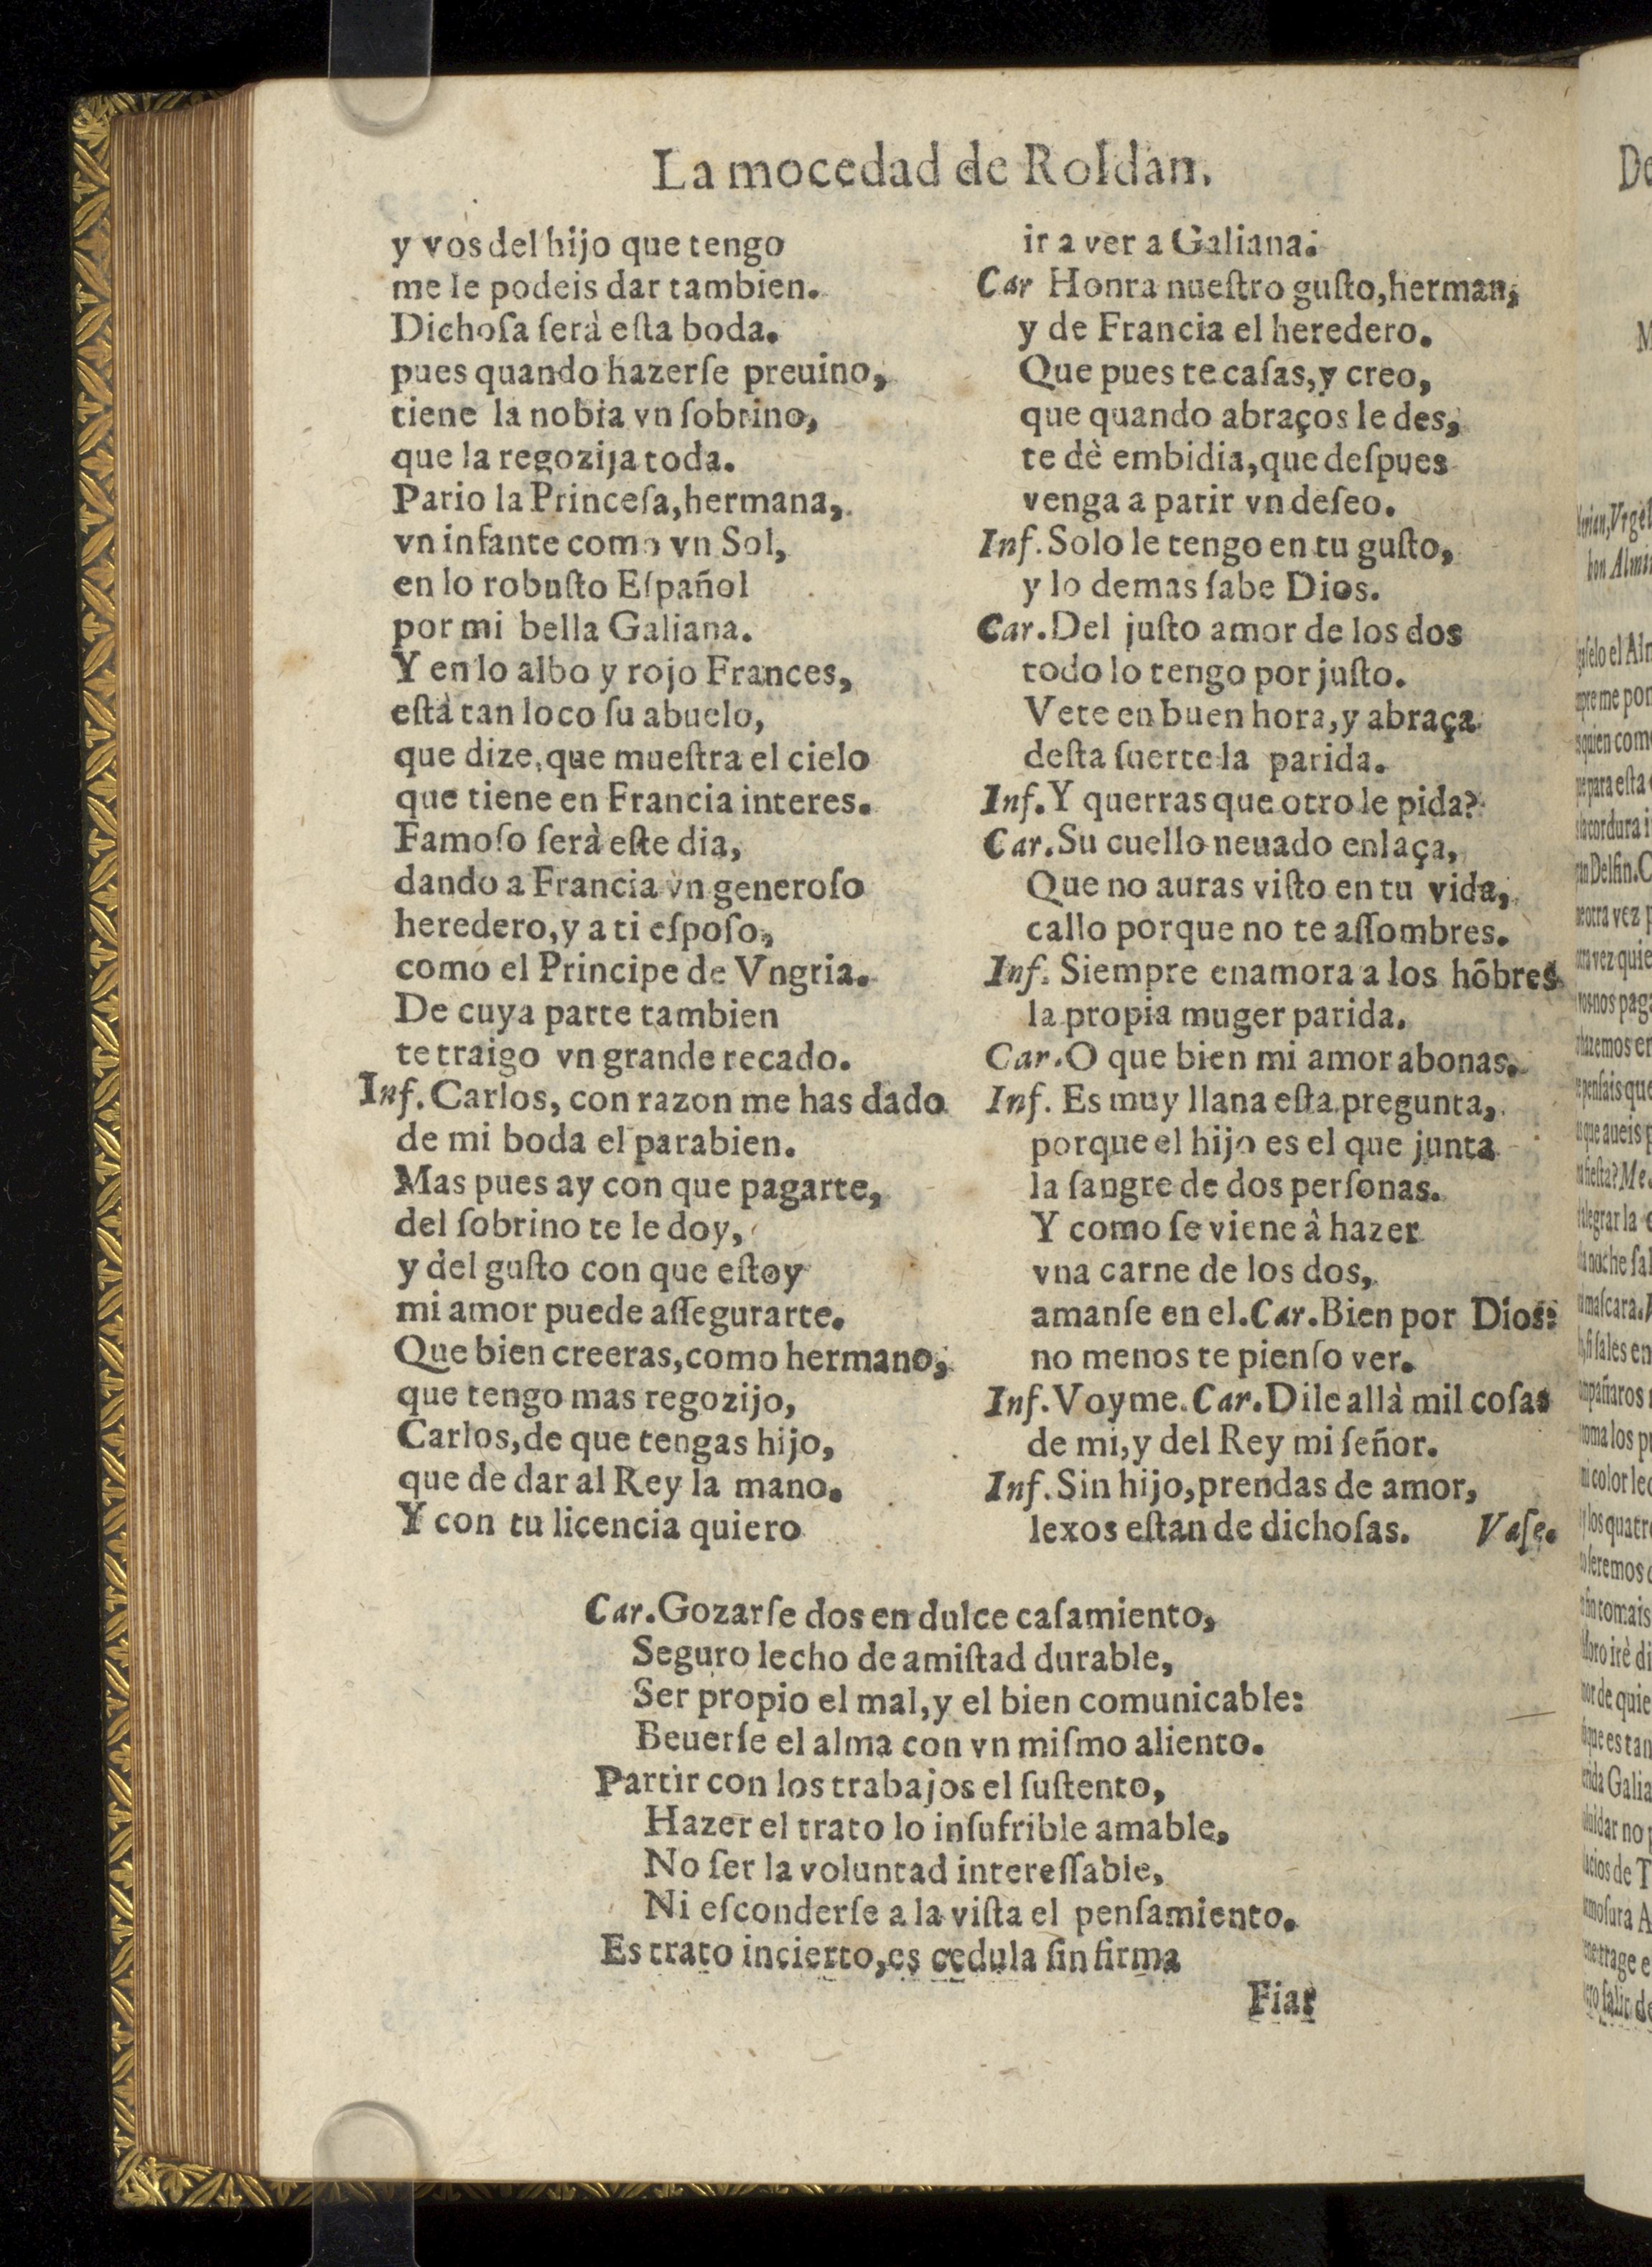 La mocedad de Roldan.
y vos del hijo que tengo
me le podeis dar tambien.
Dichoſa ſerà eſta boda.
pues quando hazerſe preuino,
tiene la nobia vn ſobrino,
que la regozija toda.
Pario la Princeſa, hermana,
vn infante como vn Sol,
en lo robuſto Eſpañol
por mi bella Galiana.
Y en lo albo y rojo Frances,
eſtà tan loco ſu abuelo,
que dize, que mueſtra el cielo
que tiene en Francia interes.
Famoſo ſerà eſte dia,
dando a Francia vn generoſo
heredero, y a ti eſpoſo,
como el Principe de Vngria.
De cuya parte tambien
te traigo vn grande recado.
Inf. Carlos, con razon me has dado
de mi boda el parabien.
Mas pues ay con que pagarte,
del ſobrino te le doy,
y del guſto con que eſtoy
mi amor puede aſſegurarte.
Que bien creeras, como hermano,
que tengo mas regozijo,
Carlos, de que tengas hijo,
que de dar al Rey la mano.
Y con tu licencia quiero
ir a ver a Galiana.
Car Honra nueſtro guſto, herman,
y de Francia el heredero.
Que pues te caſas, y creo,
que quando abraços le des,
te dè embidia, que deſpues
venga a parir vn deſeo.
Inf. Solo le tengo en tu guſto,
y lo demas ſabe Dios.
Car. Del juſto amor de los dos
todo lo tengo por juſto.
Vete en buen hora, y abraça
deſta ſuerte la parida.
Inf. Y querras que otro le pida?
Car. Su cuello neuado enlaça,
Que no auras viſto en tu vida,
callo porque no te aſſombres.
Inf. Siempre enamora a los hõbres
la propia muger parida.
Car. O que bien mi amor abonas.
Inf. Es muy llana eſta pregunta,
porque el hijo es el que junta
la ſangre de dos perſonas.
Y como ſe viene â hazer
vna carne de los dos,
amanſe en el. Car. Bien por Dios:
no menos te pienſo ver.
Inf. Voyme. Car. Dile allà mil coſas
de mi, y del Rey mi ſeñor.
Inf. Sin hijo, prendas de amor,
lexos eſtan de dichoſas. Vaſe.
Car. Gozarſe dos en dulce caſamiento,
Seguro lecho de amiſtad durable,
Ser propio el mal, y el bien comunicable:
Beuerſe el alma con vn miſmo aliento.
Partir con los trabajos el ſuſtento,
Hazer el trato lo inſufrible amable,
No ſer la voluntad intereſſable,
Ni eſconderſe a la viſta el penſamiento.
Es trato incierto, es cedula ſin firma
Fiar